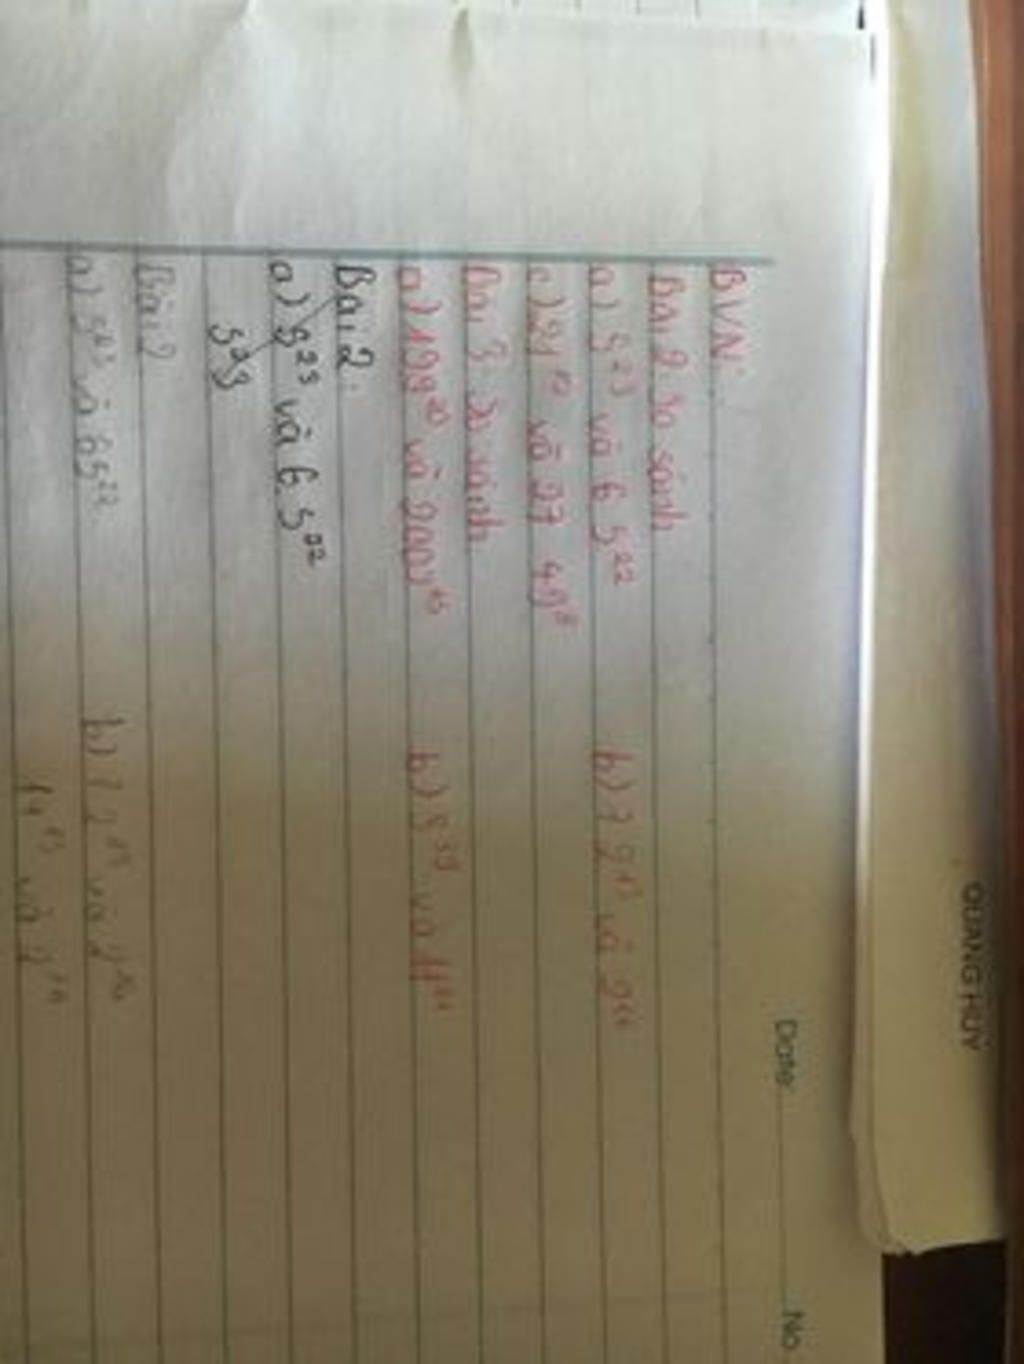 QUANG HUY
Date No
BVN:
Bài 2 so sánh
a) 5²³ và 6.5²² b) 7.2¹³ và 2¹⁶
c) 21¹⁵ và 27.49⁸
Bài 3 so sánh
a) 199²⁰ và 2003¹⁵ b) 3³⁹ và 11²¹
Bài 2:
a) 5²³ và 6.5²²
5²³
Bài 2
a) 5²³ và 6.5²² b) 7.2¹³ và 2¹⁶
và